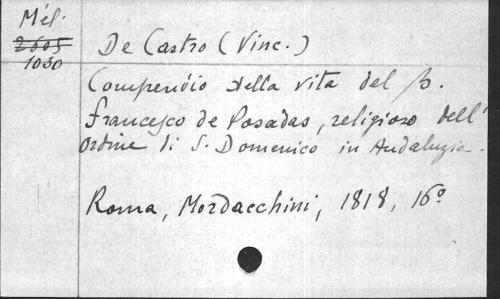 Mél.
2605
1030
De Castro (Vinc.)
Compendio della vita del B.
Francesco de Posadas, religioso dell'
Ordine di S. Domenico in Andaluzia.
Roma, Mordacchini, 1818, 16º